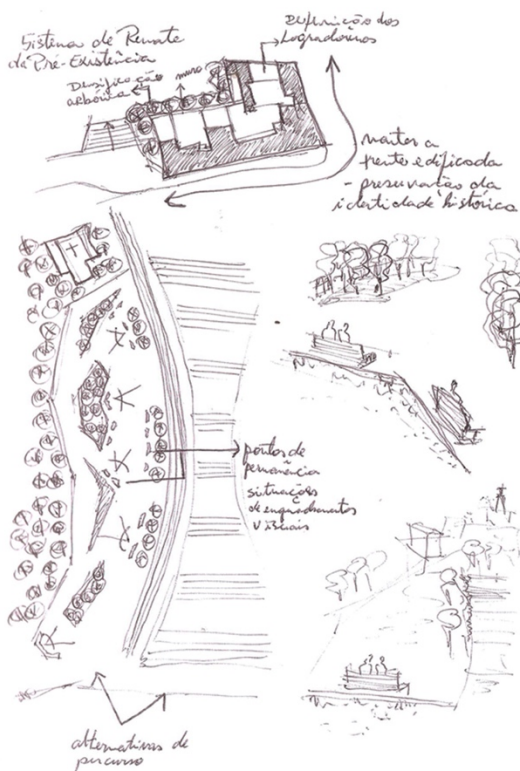 Sistema de Remate
da Pré-Existência
Densificação
arbórica
muro
Definição dos
Logradouros
manter a
frente edificada
- preservação da
identidade histórica
pontos de
permanência
situações
de enquadramentos
visuais
alternativas de
percurso